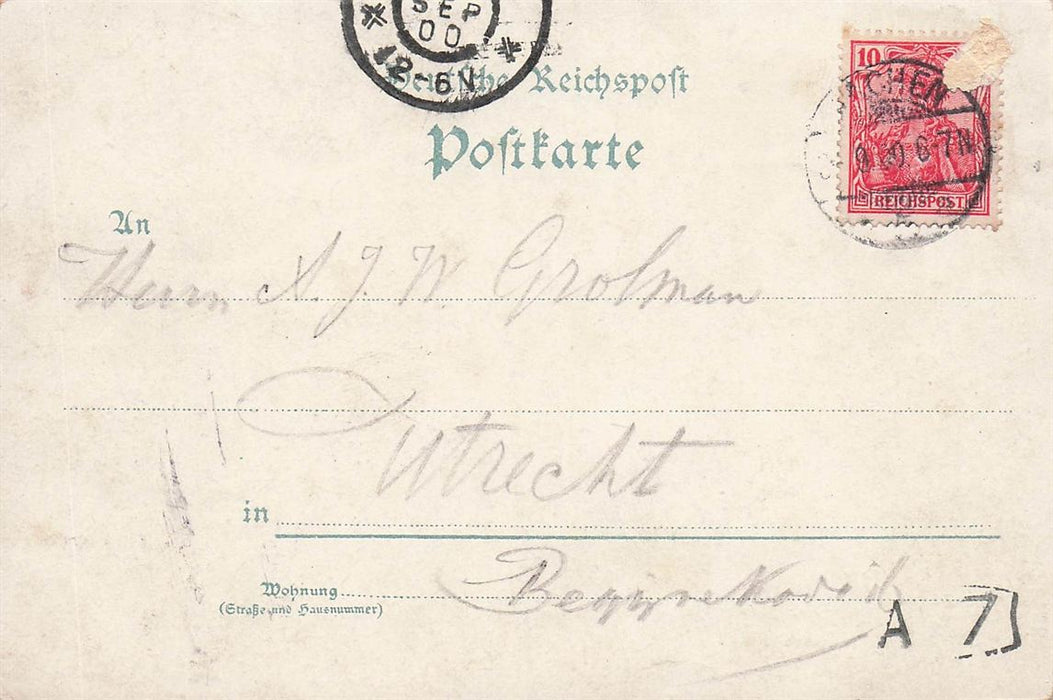 SEP
00
12-6N
Deutsche Reichspost
Postkarte
10
AACHEN
6-7N
REICHSPOST
An
Herrn A. J. W Grolman
Utrecht
in
Wohnung
(Straße und Hausnummer)
A 7